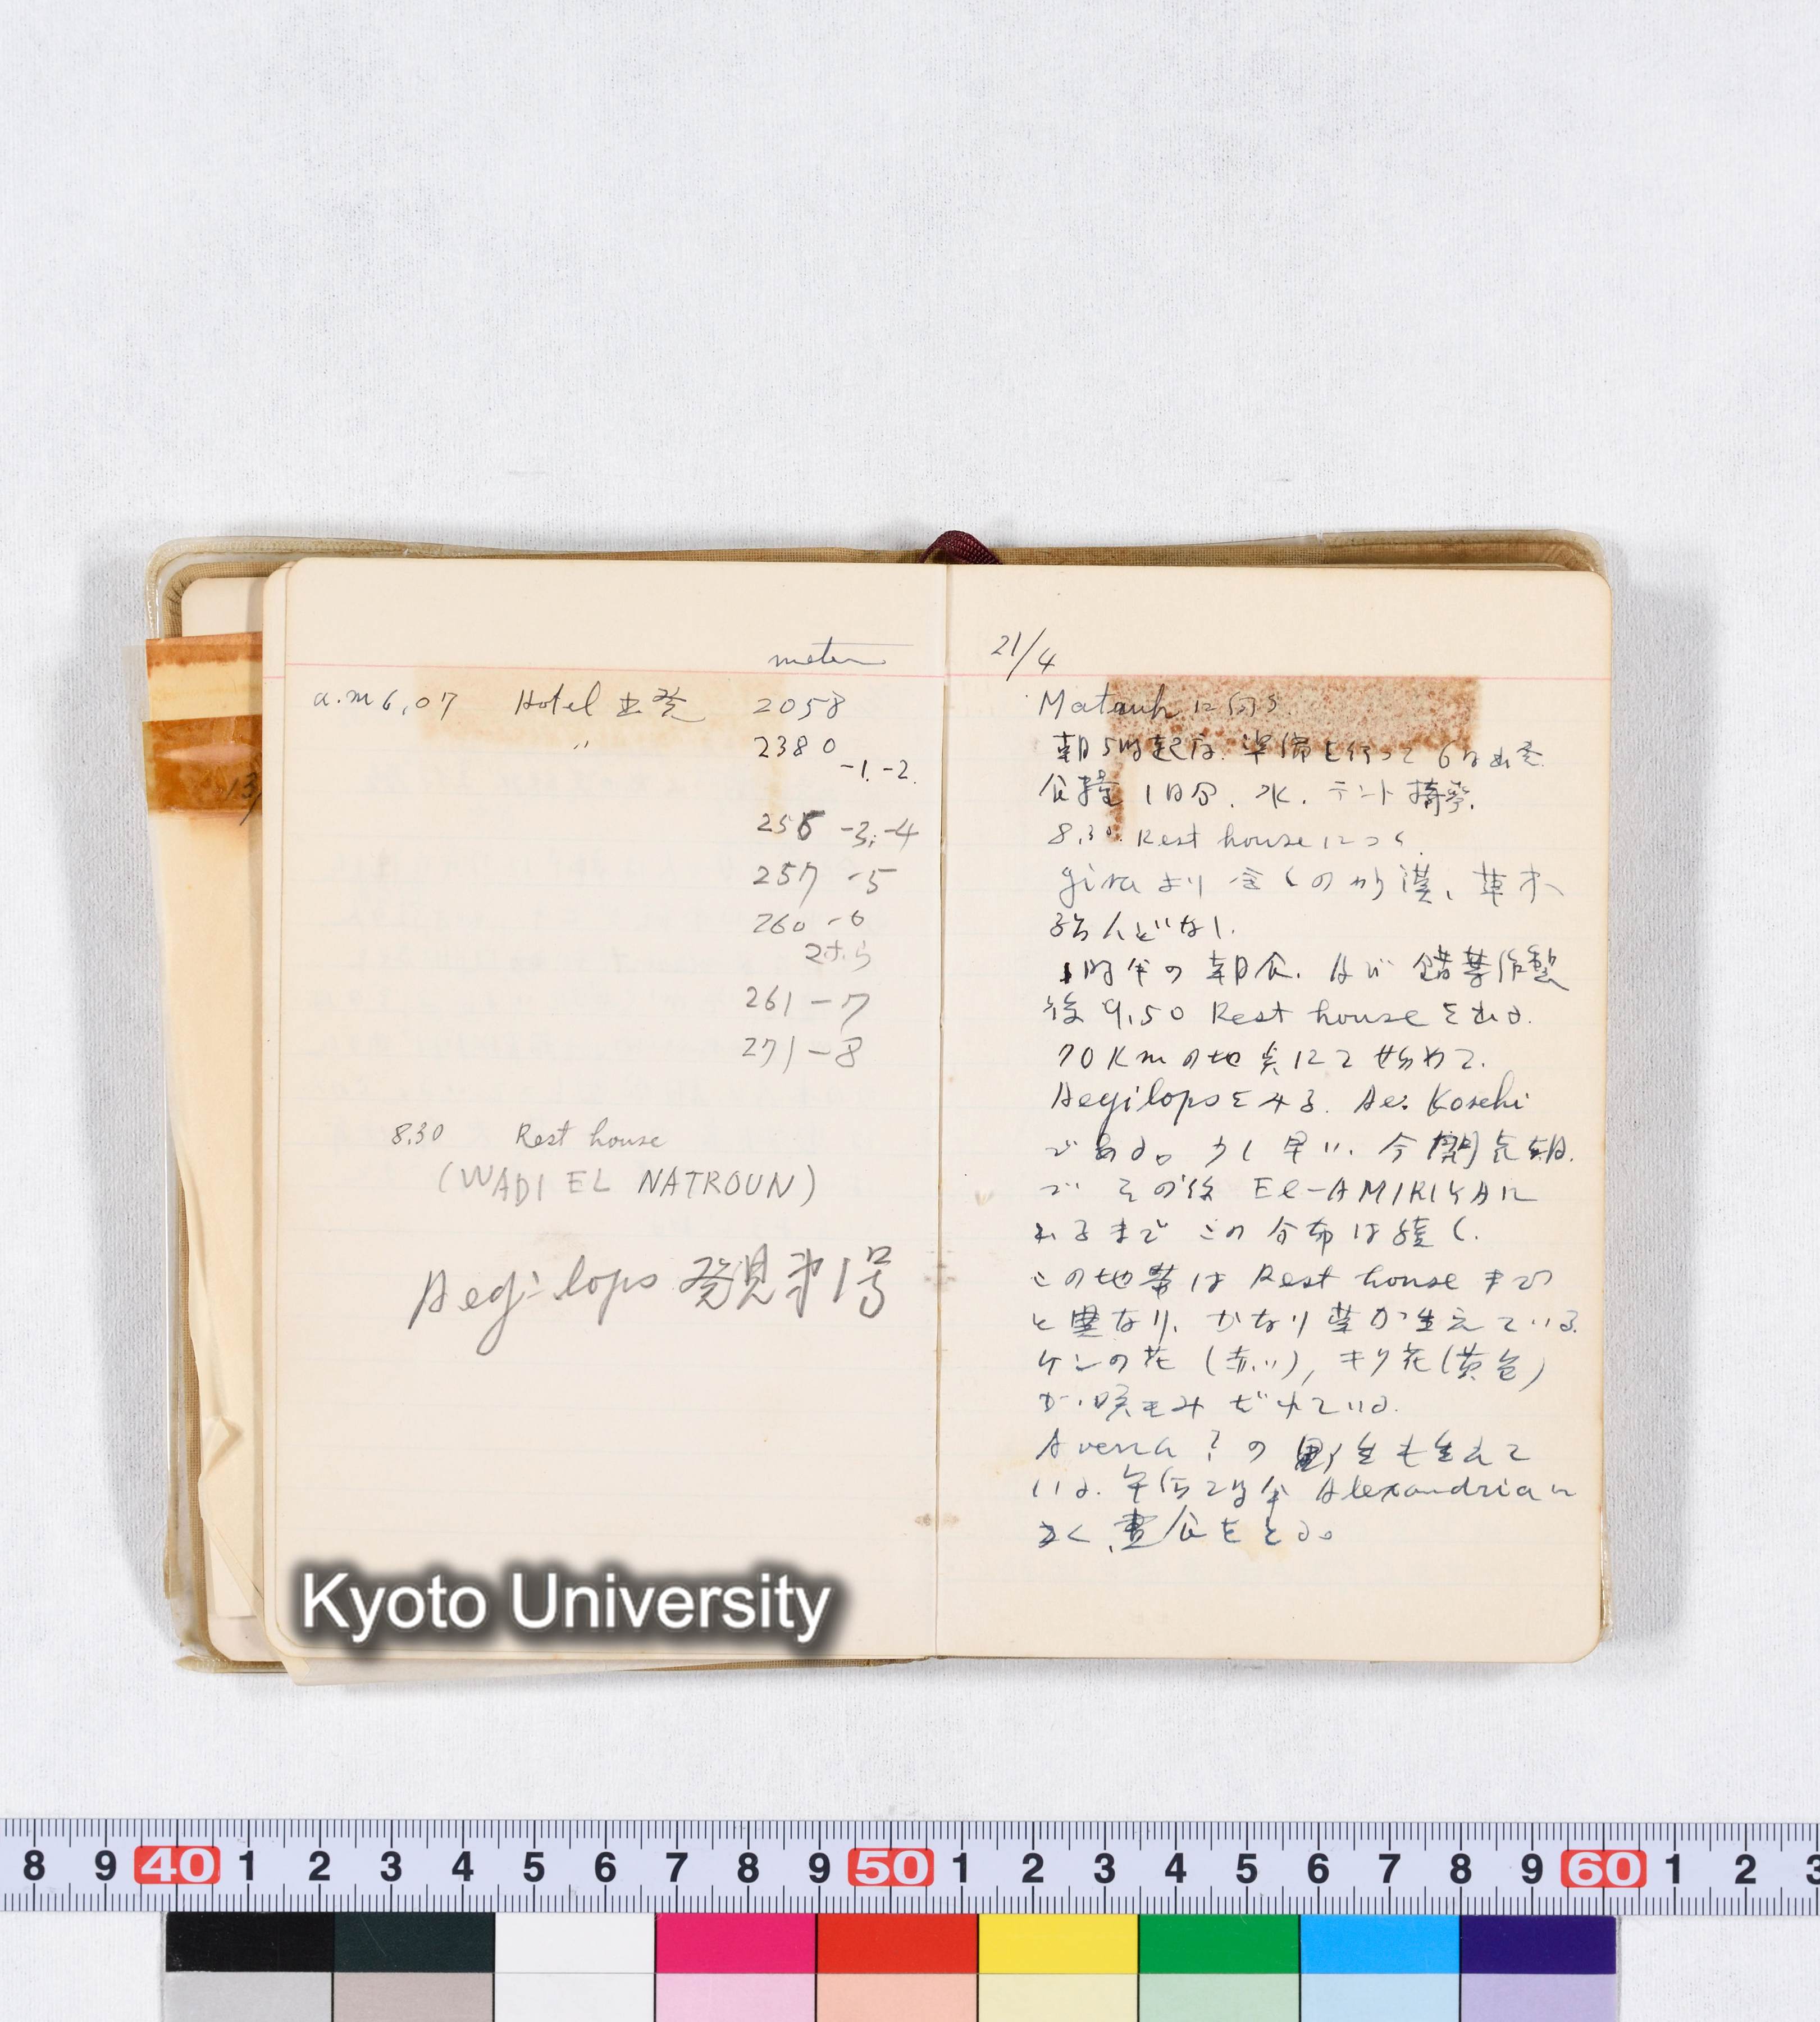 meter
a.m 6,07 Hotel 出発 2058
〃 2380 -1. -2.
256 -3, -4
257 -5
260 -6
261 - 7
271 - 8
8.30 Rest house
(WADI EL NATROUN)
Aegilops 発見第1号
21/4
Matruh に向う.
朝5時起床. 準備を行って 6時出発.
食糧 1日分. 水. テント携帯.
8,30. Rest house につく.
giza より 全くの砂漠、草木
殆んどなし.
1時半の朝食. 及び 錯葉作製
後 9,50 Rest house を出る.
70 Km の地点にて 始めて.
Aegilops をみる. Ae. Koschi
である。少し早い. 今開花期.
で その後 El-AMIRIYA に
至るまで この分布は続く.
この地帯は Rest house まで
と異なり、かなり草が生えている.
ケシの花 (赤い), キク花 (黄色)
が咲きみだれている.
Avena ? の 野生も生えて
いる. 午后2時半 Alexandria に
つく、昼食をとる。
Kyoto University
8 9 40 1 2 3 4 5 6 7 8 9 50 1 2 3 4 5 6 7 8 9 60 1 2 3